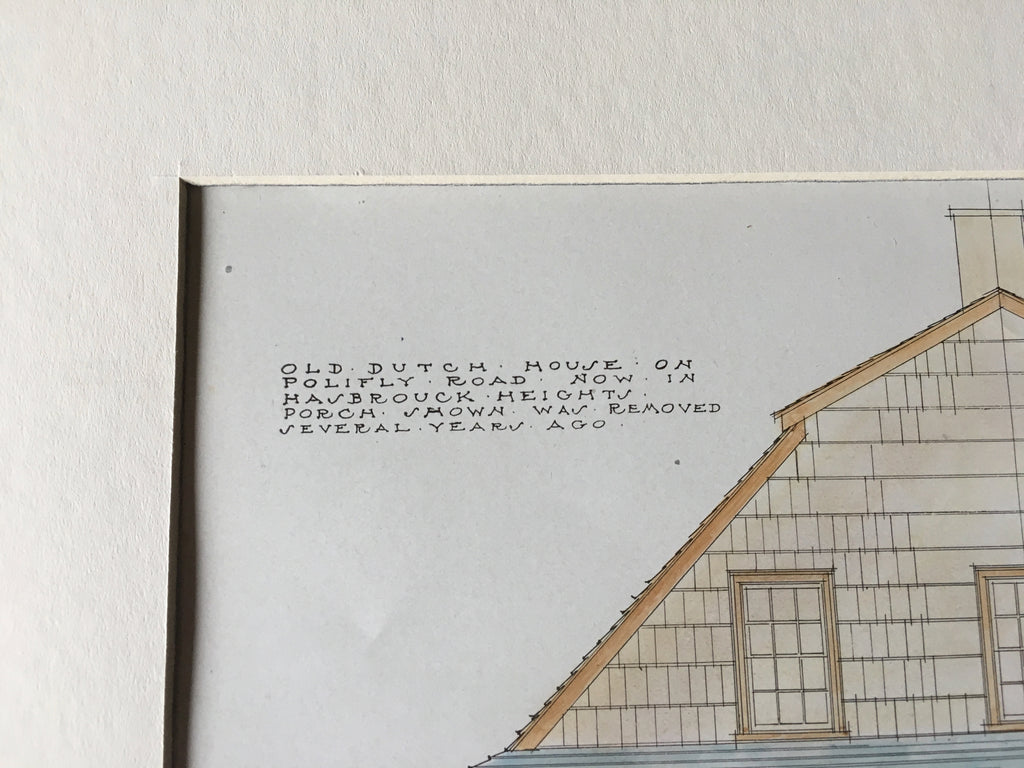 OLD · DUTCH · HOUSE · ON
POLIFLY · ROAD · NOW · IN
HASBROUCK · HEIGHTS ·
PORCH · SHOWN · WAS · REMOVED
SEVERAL · YEARS · AGO ·